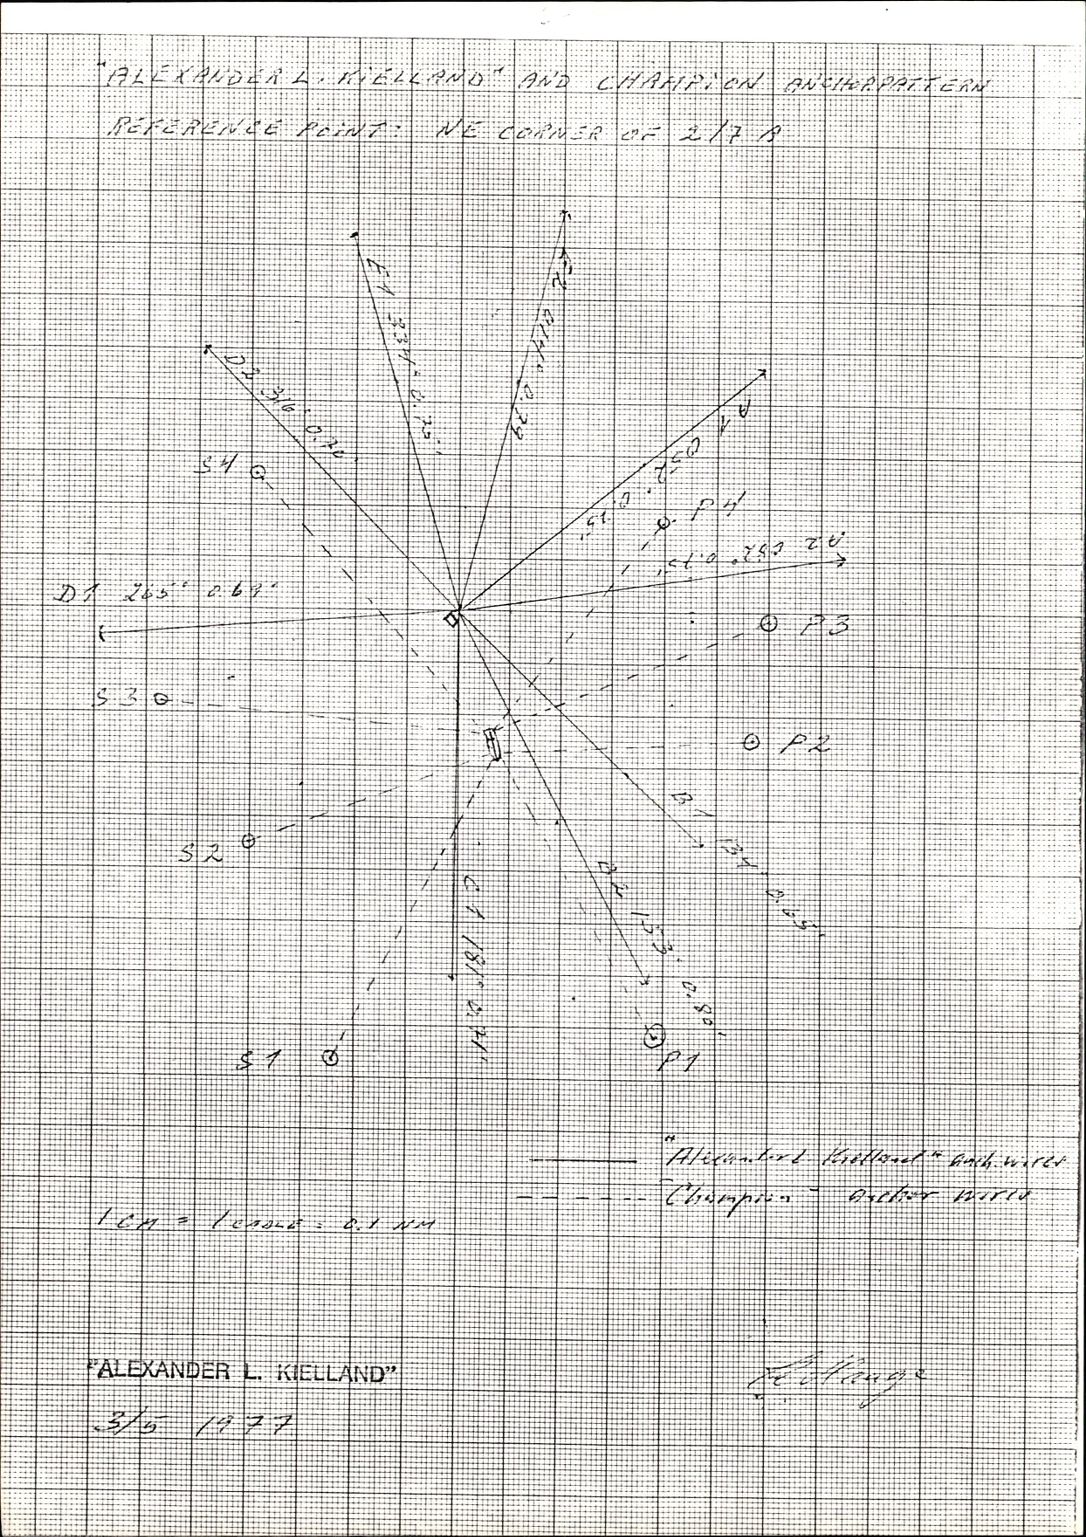 "ALEXANDER L. KIELLAND" AND CHAMPION ANCHORPATTERN
REFERENCE POINT: NE CORNER OF 2/7 A
F2 014° 0.79
E1 334° 0.75'
D2 316° 0.70'
A1 052° 0.75'
S4
P4
A2 082° 0.75'
D1 265° 0.69'
P3
S3
P2
B1 134° 0.65'
S2
B2 153° 0.80'
C1 181° 0.71'
S1
P1
"Alexander L Kielland" anch. wires
"Champion" anchor wires
1 CM = 1 CABLE = 0.1 NM
"ALEXANDER L. KIELLAND"
3/5 1977